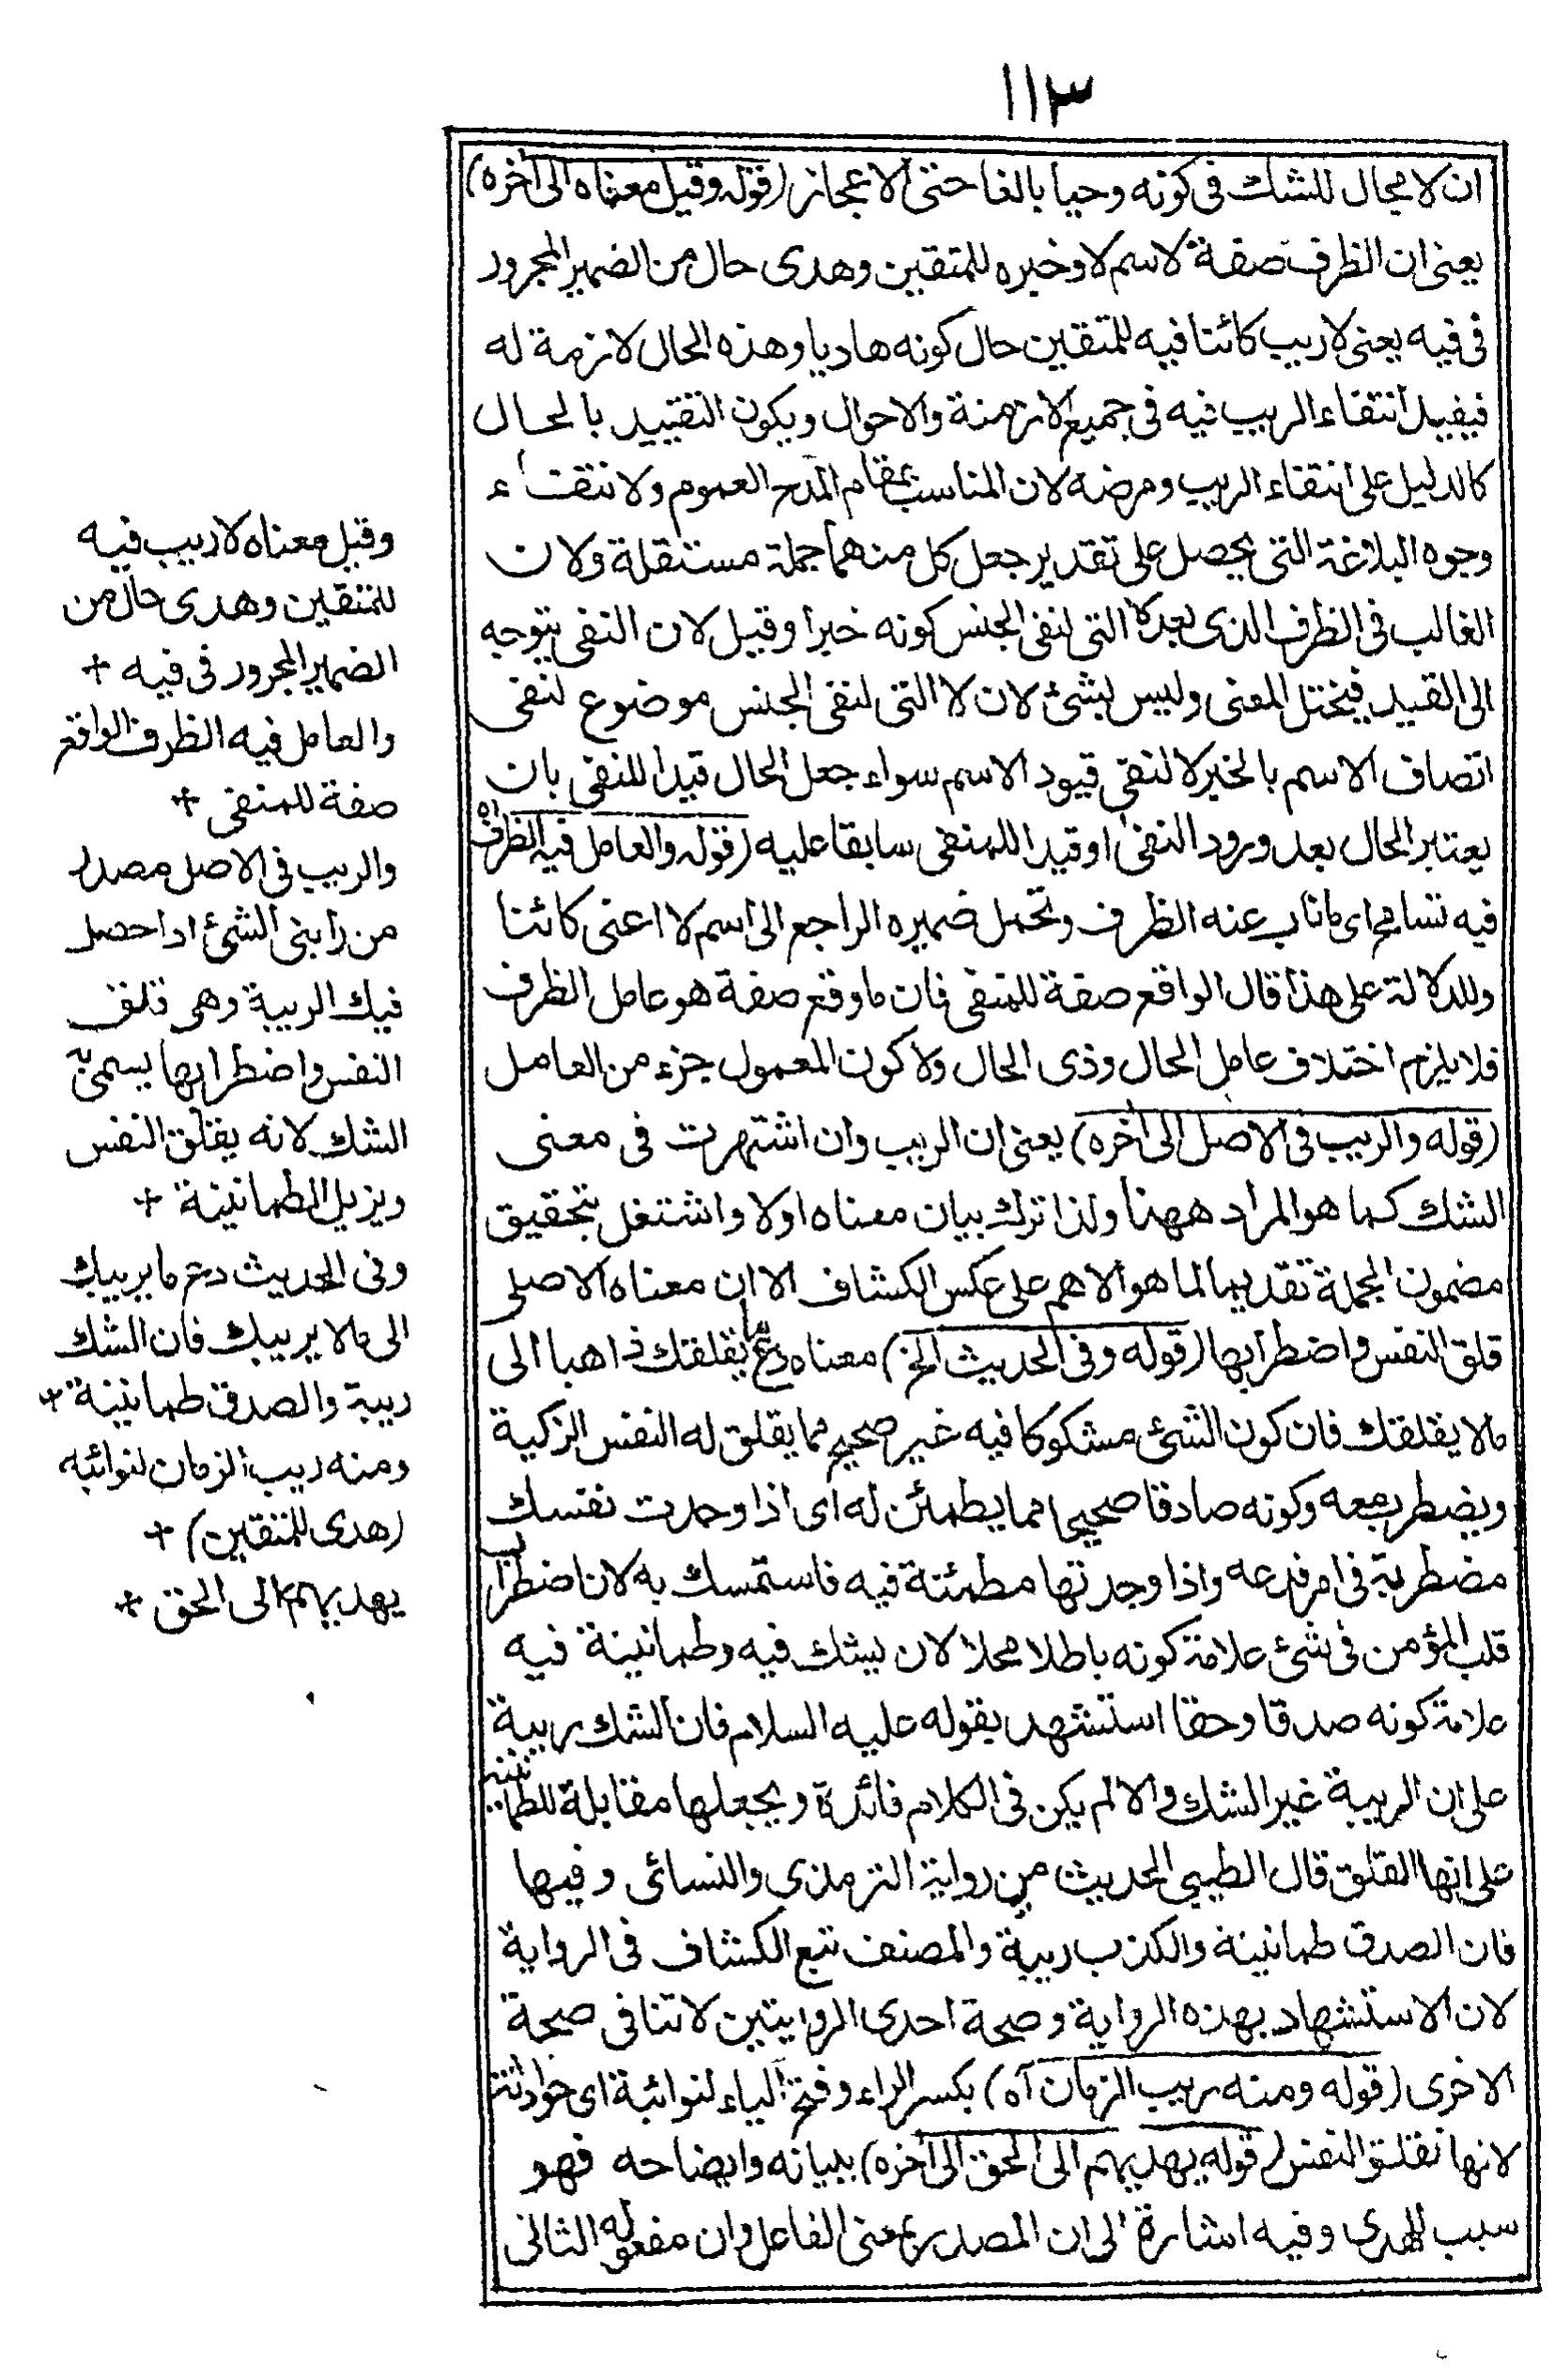 ١١٣
ان لا مجال للشك فى كونه وحيا بالغا حتى الاعجاز (قوله وقيل معناه الى آخره)
يعنى ان الظرف صفة لاسم لا وخبره للمتقين وهدى حال من الضمير المجرور
فى فيه يعنى لا ريب كائنا فيه للمتقين حال كونه هاديا وهذه الحال لازمة له
فيفيد انتفاء الريب فيه فى جميع الازمنة والاحوال ويكون التقييد بالحال
كالدليل على انتفاء الريب ومرضه لان المناسب بمقام المدح العموم ولانتفاء
وجوه البلاغة التى يحصل على تقدير جعل كل منهما جملة مستقلة ولان
الغالب فى الظرف الذى بعد لا التى لنفى الجنس كونه خبرا وقيل لان النفى يتوجه
الى القيد فيختل المعنى وليس بشئ لان لا التى لنفى الجنس موضوع لنفى
اتصاف الاسم بالخبر لا لنفى قيود الاسم سواء جعل الحال قيدا للنفى بان
يعتبر الحال بعد ورود النفى او قيدا للمنفى سابقا عليه (قوله والعامل فيه الظرف اه
فيه تسامح اى ما ناب عنه الظرف وتحمل ضميره الراجع الى اسم لا اعنى كائنا
وللدلالة على هذا قال الواقع صفة للمنفى فان ما وقع صفة هو عامل الظرف
فلا يلزم اختلاف عامل الحال وذى الحال ولا كون المعمول جزء من العامل
(قوله والريب فى الاصل الى آخره) يعنى ان الريب وان اشتهرت فى معنى
الشك كما هو المراد ههنا ولذا ترك بيان معناه اولا واشتغل بتحقيق
مضمون الجملة تقديما لما هو الاهم على عكس الكشاف الا ان معناه الاصلى
قلق النفس واضطرابها (قوله وفى الحديث الخ) معناه دع ما يقلقك ذاهبا الى
ما لا يقلقك فان كون الشئ مشكوكا فيه غير صحيح مما يقلق له النفس الزكية
ويضطرب معه وكونه صادقا صحيحا مما يطمئن له اى اذا وجدت نفسك
مضطربة فى امر فدعه واذا وجدتها مطمئنة فيه فاستمسك به لان اضطراب
قلب المؤمن فى شئ علامة كونه باطلا محلا لان يشك فيه وطمانينة فيه
علامة كونه صدقا وحقا استشهد بقوله عليه السلام فان الشك ريبة
على ان الريبة غير الشك والا لم يكن فى الكلام فائدة ويجعلها مقابلة للطمانينة
على انها القلق قال الطيبى الحديث من رواية الترمذى والنسائى وفيها
فان الصدق طمانينة والكذب ريبة والمصنف تبع الكشاف فى الرواية
لان الاستشهاد بهذه الرواية وصحة احدى الروايتين لا تنافى صحة
الاخرى (قوله ومنه ريب الزمان آه) بكسر الراء وفتح الياء لنوائبة اى حوادثه
لانها تقلق النفس (قوله يهديهم الى الحق الى آخره) ببيانه وايضاحه فهو
سبب الهدى وفيه اشارة الى ان المصدر بمعنى الفاعل وان مفعوله الثانى
وقيل معناه لا ريب فيه
للمتقين وهدى حال من
الضمير المجرور فى فيه +
والعامل فيه الظرف الواقع
صفة للمنفى +
والريب فى الاصل مصدر
من رابنى الشئ اذا حصل
فيك الريبة وهى قلق
النفس واضطرابها يسمى به
الشك لانه يقلق النفس
ويزيل الطمانينة +
وفى الحديث دع ما يريبك
الى ما لا يريبك فان الشك
ريبة والصدق طمانينة +
ومنه ريب الزمان لنوائبه
(هدى للمتقين) +
يهديهم الى الحق +